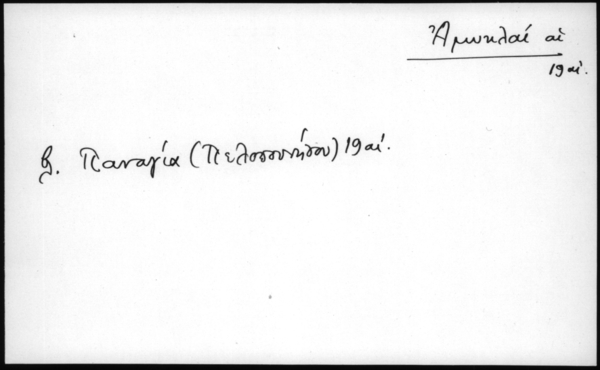 Ἀμυκλαί αἱ
19 αἰ.
βλ. Παναγία (Πελοποννήσου) 19 αἰ.